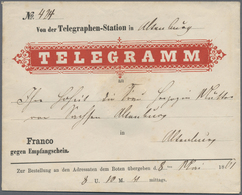 No. 494
Von der Telegraphen-Station in Altenburg
TELEGRAMM
an
Ihre Hoheit die Frau Herzogin Mutter
von Sachsen Altenburg
Altenburg
Franco
gegen Empfangschein.
Zur Bestellung an den Adressaten dem Boten übergeben d. 8 Mai 186
8 U. 10 M. mittags.